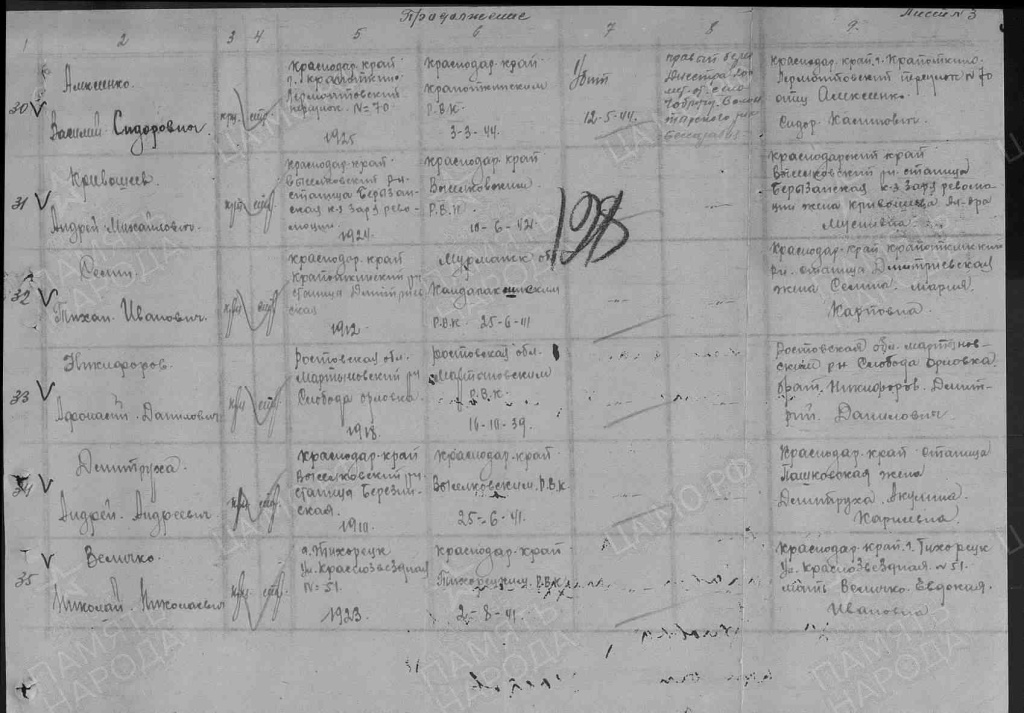 Продолжение
Лист № 3
1 2 3 4 5 6 7 8 9
30
Алексенко
Василий Сидорович
Краснодар. край
г. Крапоткино
Лермонтовский
переулок № 70
1925
Краснодар. край
Крапоткинским
Р.В.К.
3-3-44.
Убит
12-5-44.
правый берег
Днестра
Краснодар. край. г. Крапоткино
Лермонтовский переулок № 70
отец Алексенко
Сидор
31
Кривошеев
Андрей Михайлович
Краснодар. край
Выселковский р-н
станица Берызан-
ская к-з Заря рево-
люции
1924
Краснодар. край
Выселковским
Р.В.К.
10-6-42
198
Краснодарский край
Выселковский р-н станица
Берызанская к-з Заря револю-
ции жена Кривошеева
32
Селин
Тихан Иванович
Краснодар. край
Крапоткинский р-н
станица Дмитриев-
ская
1912
Мурманск обл
Кандалакшским
Р.В.К. 25-6-41
Краснодар. край Крапоткинский
р-н станица Дмитриевская
жена Селина Мария
Карповна
33
Никифоров
Афонасий Данилович
Ростовская обл.
Мартыновский р-н
Слобода Орловка
1918
Ростовская обл.
Мартыновским
Р.В.К.
16-10-39.
Ростовская обл. Мартынов-
ский р-н Слобода Орловка
брат Никифоров Дмит-
рий Данилович
34
Демитруха
Андрей Андреевич
Краснодар. край
Выселковский р-н
станица
1910
Краснодар. край
Выселковским Р.В.К
25-6-41.
Краснодар. край станица
Пашковская жена
Демитруха Акулина
35
Величко
Николай Николаевич
г. Тихорецк
Ул. Краснозвездная
№ 51.
1923
Краснодар. край
Тихорецким Р.В.К
2-8-41.
Краснодар. край. г. Тихорецк
Ул. Краснозвездная № 51.
мать Величко Евдокия
Ивановна
ПАМЯТЬ
НАРОДА
ЦАМО.РФ